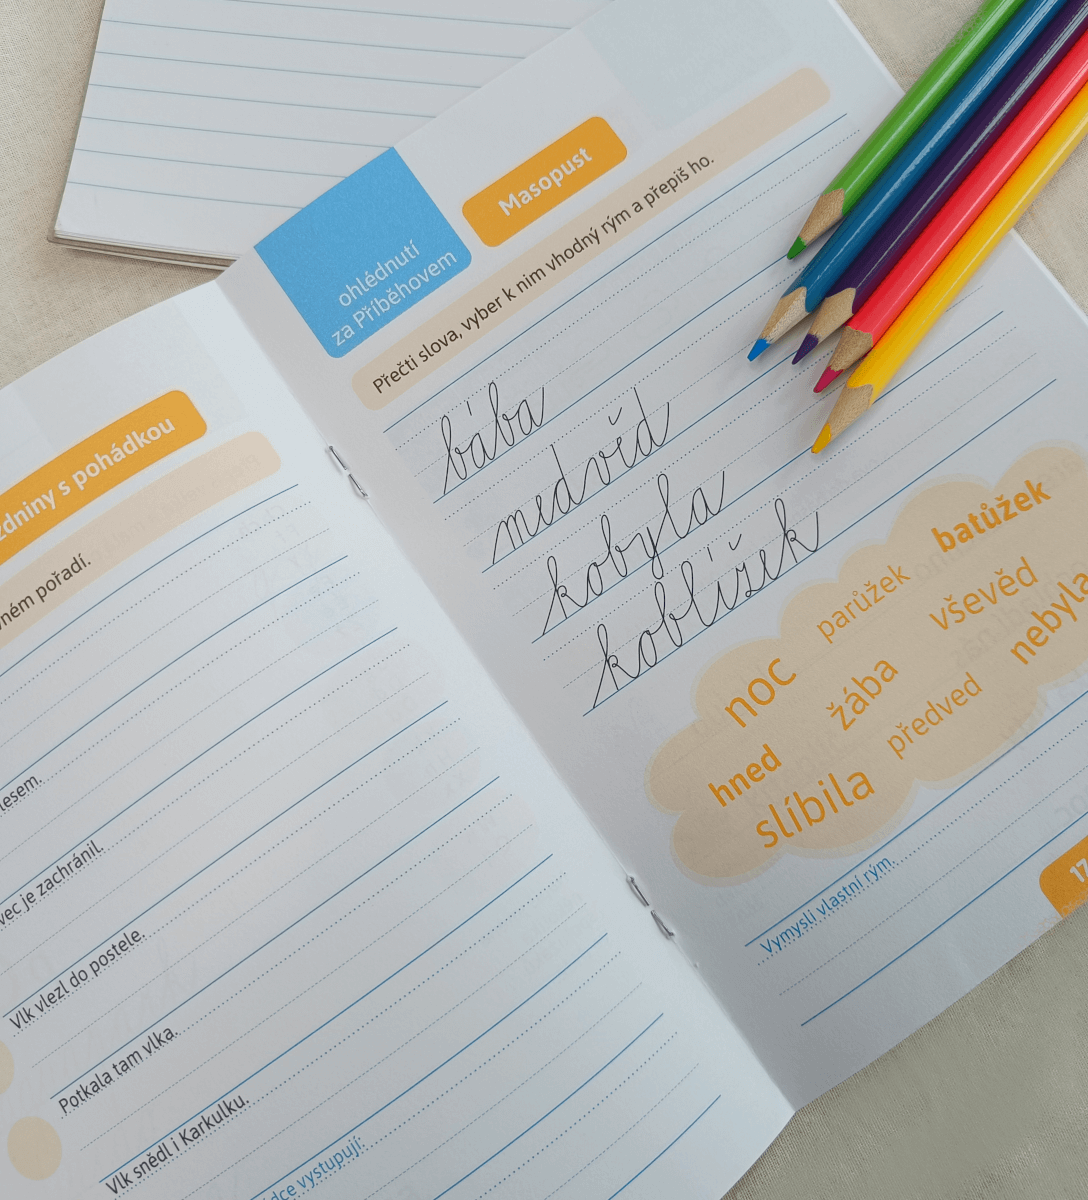 s pohádkou
pořadí.
lesem.
je zachránil.
Vlk vlezl do postele.
Potkala tam vlka.
Vlk snědl i Karkulku.
vystupují:
ohlédnutí
za Příběhovem
Masopust
Přečti slova, vyber k nim vhodný rým a přepiš ho.
bába
medvěd
kobyla
koblížek
batůžek
parůžek
vševěd
nebyla
noc
žába
předved
hned
slíbila
Vymysli vlastní rým.
17